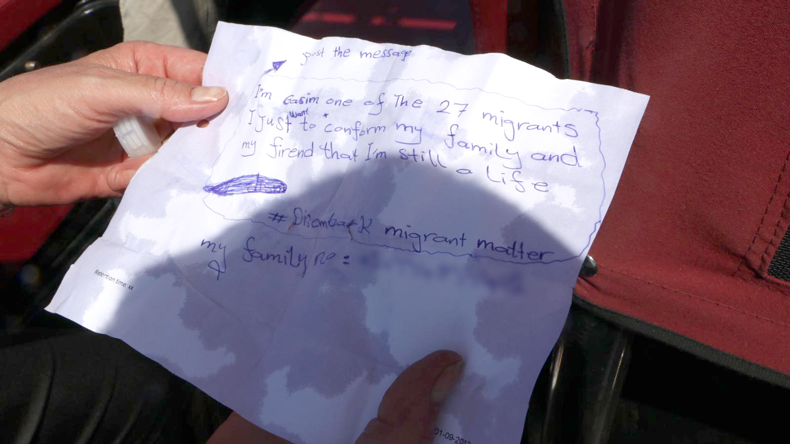 just the message
I'm Gasim one of The 27 migrants
I just want to conform my family and
my firend that I'm still a life
# migrant matter
my family no:
01-09-20